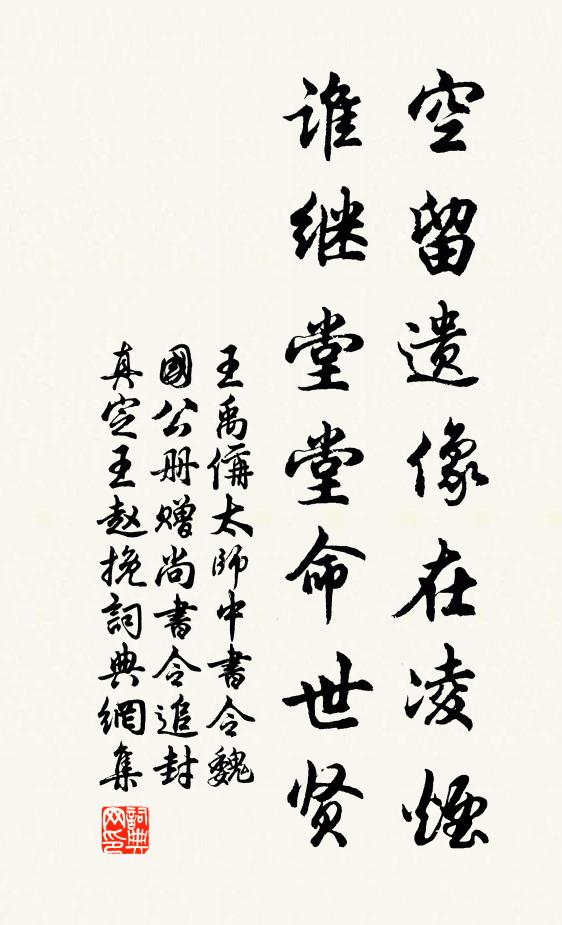 空留遗像在凌烟
谁继堂堂命世贤
王禹偁太师中書令魏
國公册赠尚書令追封
真定王赵挽詞典網集
詞典网印